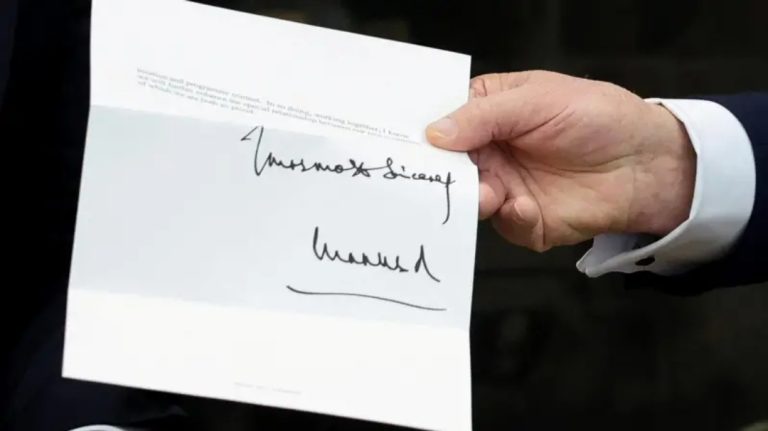 location and programme content. In so doing, working together, I know
we will further enhance the special relationship between our two countries
of which we are both so proud.
Yours most sincerely
Charles R